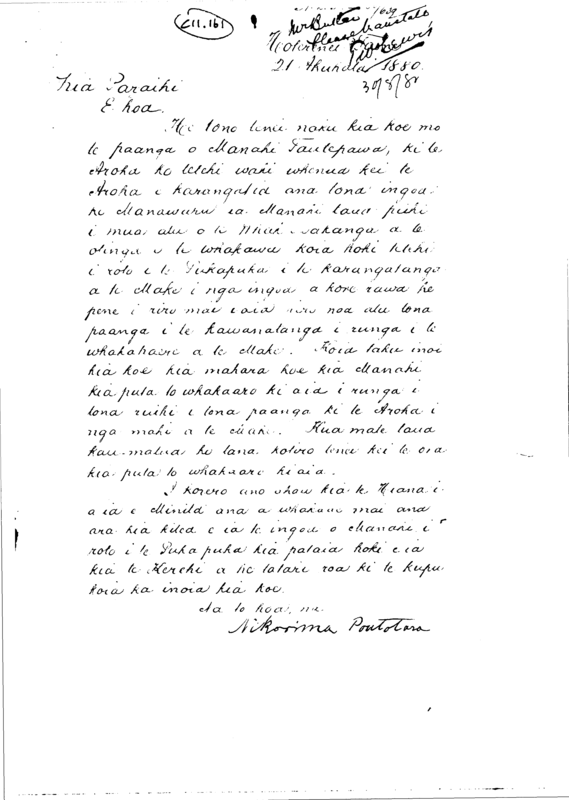 E11.161
Mr Butler
Please translate
21 Akuhata 1880.
30/8/80
Kia Paraihi
E hoa.
He tono tenei naku kia koe mo
te paanga o Manahi Tautepawa, ki te
Aroha ko tetehi wahi whenua kei te
Aroha e karangatia ana tona ingoa
ko Manawaru ia Manahi taua piihi
i mua atu o te
otinga o te whakawa koia hoki tetehi
i roto i te Pukapuka i te karangatanga
a te Make i nga ingoa a kore rawa he
pene i riro mai i aia riro noa atu tona
paanga i te Kawanatanga i runga i te
whakahaere a te Make. Koia taku inoi
kia koe kia mahara koe kia Manahi
kia puta to whakaaro ki aia i runga i
tona ruihi i tona paanga ki te Aroha i
nga mahi a te Make. Kua mate taua
kau-matua ko tana kotiro tenei kei te ora
kia puta to whakaaro ki aia.
I korero ano ahau kia te Hiana i
a ia e Minita ana a whakaae mai ana
ara kia kitea e ia te ingoa o Manahi i
roto i te Pukapuka kia pataia hoki e ia
kia te Kerehi a he tatari roa ki te kupu
koia ka inoia kia koe.
Na to hoa, na
Nikorima Poutotara